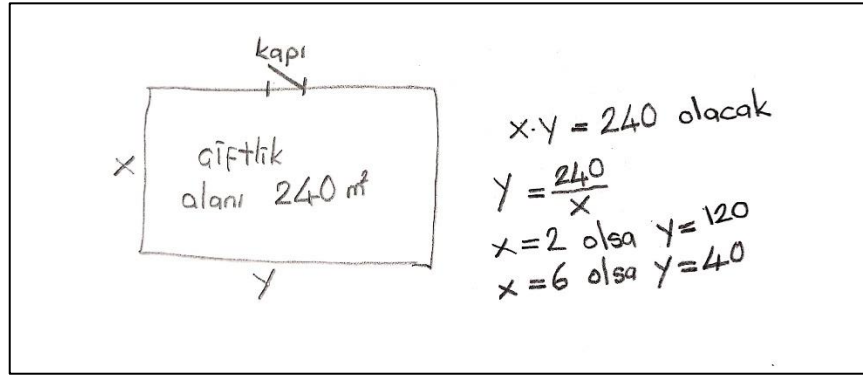 kapı
x
çiftlik
alanı 240 m²
y
x·y = 240 olacak
y = 240/x
x=2 olsa y=120
x=6 olsa y=40